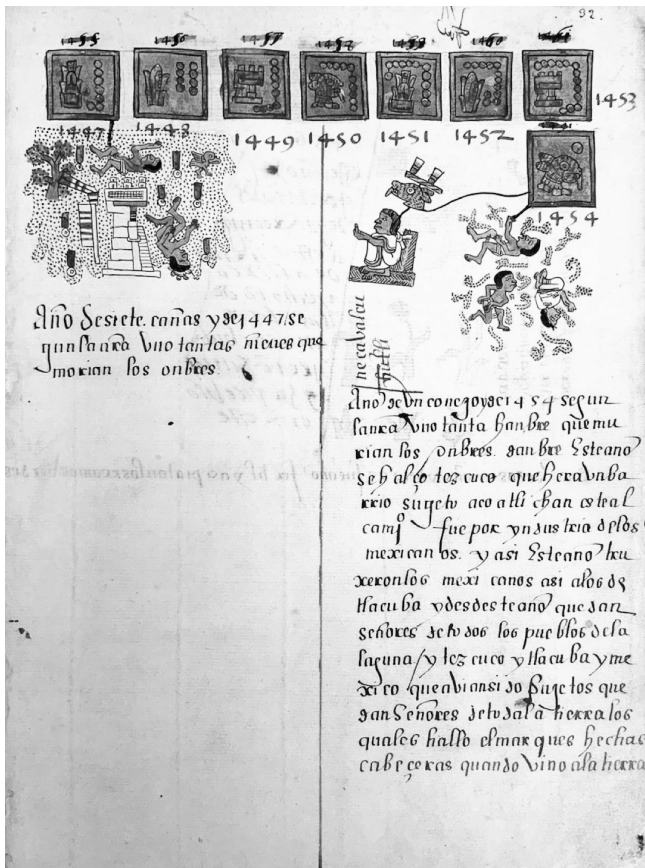 92.
1447
1448
1449
1450
1451
1452
1453
1454
Año de siete. cañas y de 1447. se
gun la nrã vno tantas nieues que
morian los onbres.
Año de vn conejo y de 1454 segun
la nrã vno tanta hanbre que mu
rian los onbres. danbre Este año
se halço tezcuco que hera vn ba
rrio sugeto a coatli chan este al
fue por yndustria de los
mexicanos. y asi Este año tru
xeron los mexicanos asi a los de
tlacuba y desdeste año quedan
señores de todos los pueblos de la
laguna / y tezcuco y tlacuba y me
xico que avian sido sugetos que
dan Señores de toda la tierra los
quales hallo el marques hechas
cabeçeras quando vino a la tierra